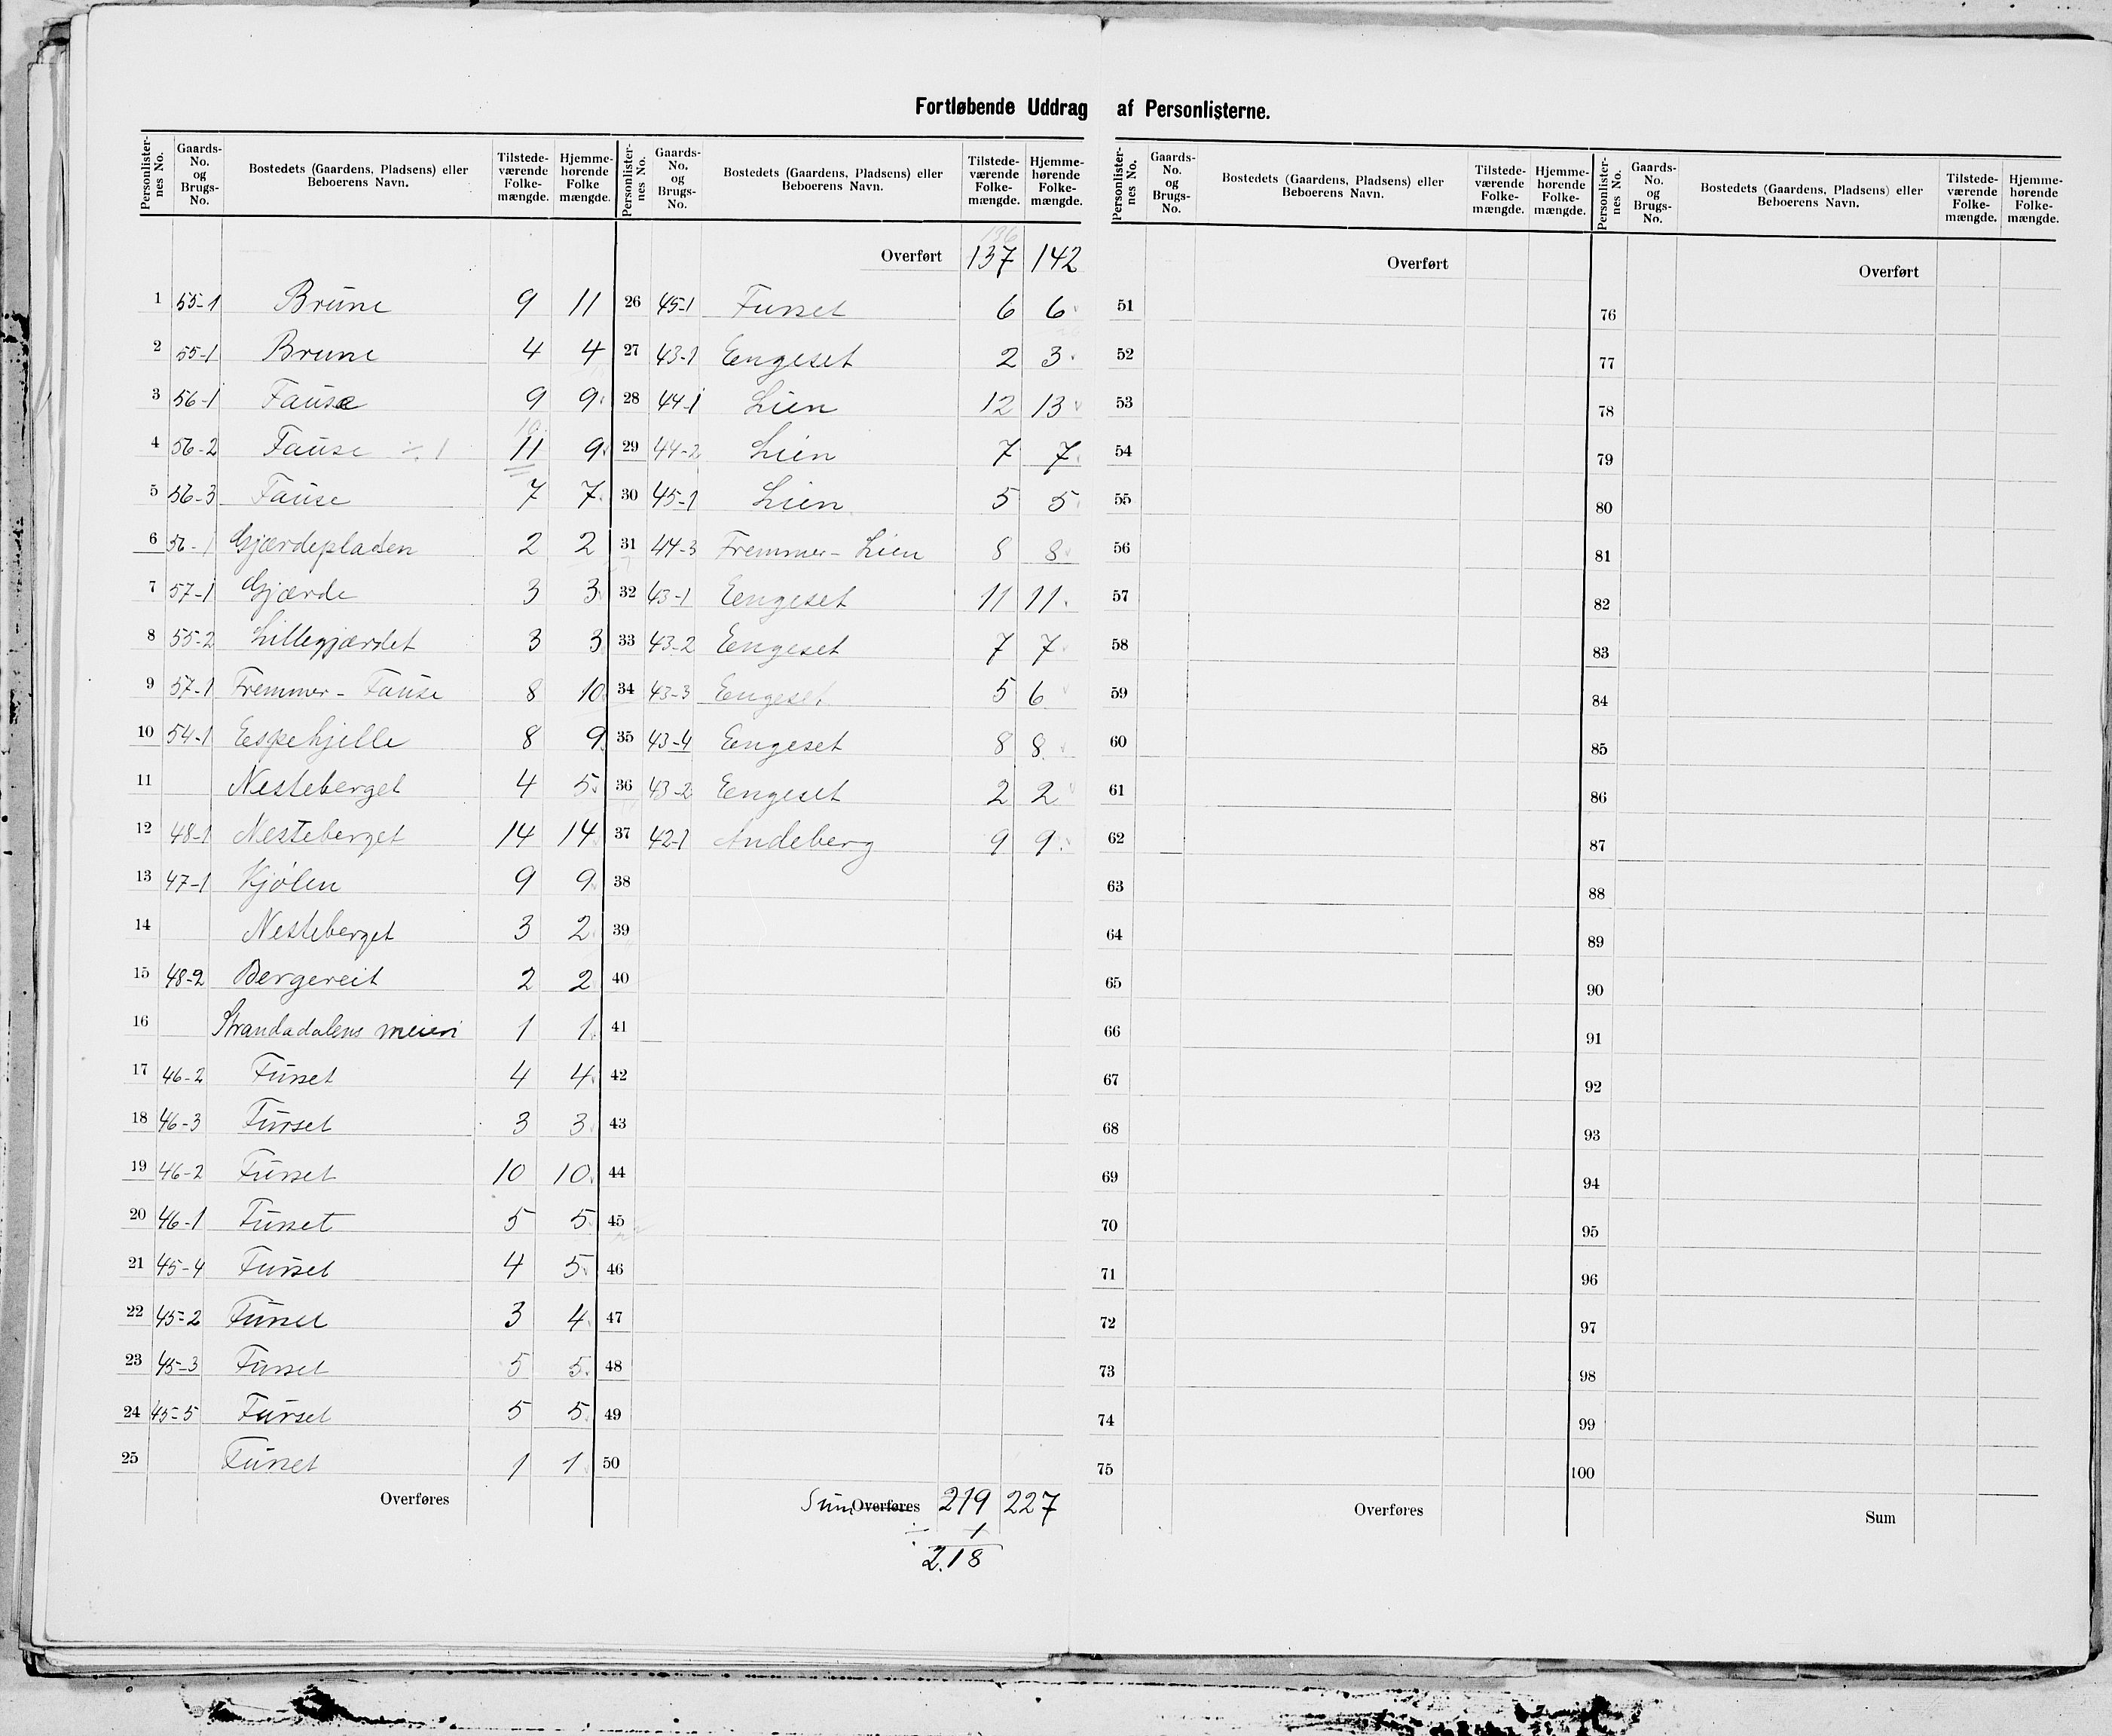 Fortløbende Uddrag af Personlisterne.
Personlister-nes No. Gaards-No. og Brugs-No. Bostedets (Gaardens, Pladsens) eller Beboerens Navn. Tilstede-værende Folke-mængde. Hjemme-hørende Folke mængde.
1 55-1 Brune 9 11
2 55-1 Brune 4 4
3 56-1 Fause 9 9
4 56-2 Fause ÷ 1 11 9
10
5 56-3 Fause 7 7
6 56-1 Gjærdepladsen 2 2
7 57-1 Gjærde 3 3
8 55-2 Lillegjærdet 3 3
9 57-1 Fremmer-Fause 8 10
10 54-1 Espehjelle 8 9
11 Nesteberget 4 5
12 48-1 Nesteberget 14 14
13 47-1 Kjølen 9 9
14 Nesteberget 3 2
15 48-2 Bergereit 2 2
16 Strandadalens meieri 1 1
17 46-2 Furset 4 4
18 46-3 Furset 3 3
19 46-2 Furset 10 10
20 46-1 Furset 5 5
21 45-4 Furset 4 5
22 45-2 Furset 3 4
23 45-3 Furset 5 5
24 45-5 Furset 5 5
25 Furset 1 1
Overføres
Personlister-nes No. Gaards-No. og Brugs-No. Bostedets (Gaardens, Pladsens) eller Beboerens Navn. Tilstede-værende Folke-mængde. Hjemme-hørende Folke-mængde.
136
Overført 137 142
26 45-1 Furset 6 6
27 43-1 Eengeset 2 3
28 44-1 Lien 12 13
29 44-2 Lien 7 7
30 45-1 Lien 5 5
31 44-3 Fremmer-Lien 8 8
32 43-1 Eengeset 11 11
33 43-2 Eengeset 7 7
34 43-3 Eengeset 5 6
35 43-4 Eengeset 8 8
36 43-2 Eengeset 2 2
37 42-1 Andeberg 9 9
38
39
40
41
42
43
44
45
46
47
48
49
50
Sum Overføres 219 227
÷ 1
218
Personlister-nes No. Gaards-No. og Brugs-No. Bostedets (Gaardens, Pladsens) eller Beboerens Navn. Tilstede-værende Folke-mængde. Hjemme-hørende Folke-mængde.
Overført
51
52
53
54
55
56
57
58
59
60
61
62
63
64
65
66
67
68
69
70
71
72
73
74
75
Overføres
Personlister-nes No. Gaards-No. og Brugs-No. Bostedets (Gaardens, Pladsens) eller Beboerens Navn. Tilstede-værende Folke-mængde. Hjemme-hørende Folke-mængde.
Overført
76
77
78
79
80
81
82
83
84
85
86
87
88
89
90
91
92
93
94
95
96
97
98
99
100
Sum